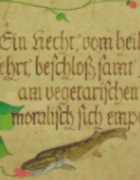 Ein Hecht, vom heil
ehrt, beschloß samt
am vegetarischen
moralisch sich emp